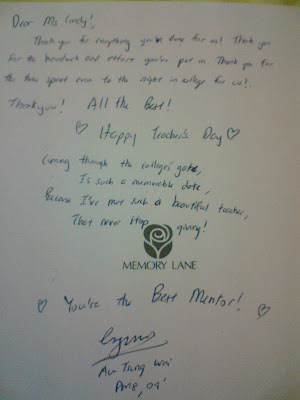 Dear Ms Cindy!,
Thank you for everything you've done for us! Thank you
for the hardwork and effort you've put in. Thank you for
the time spent even to the night in college for us!.
Thank you! All the Best!
♡ Happy Teacher's Day ♡
Coming though the college's gate,
Is such a memorable date,
Because I've met such a beautiful teacher,
That never stop giving!
MEMORY LANE
♡ You're the Best Mentor! ♡
Au Tsung Wei
09'